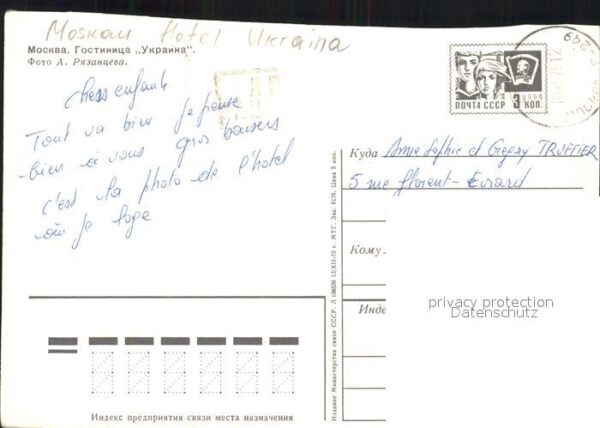 Moskau Hotel Ukraina
Москва. Гостиница „Украина".
Фото А. Рязанцева.
chers enfants
Tout va bien je pense
bien à vous gros baisers
c'est la photo de l'hotel
où je loge
1966
ПОЧТА СССР 3 КОП.
249
Куда Anne Sophie et Grégory TRUFFIER
5 rue florent-Evrard
Кому
Инде
privacy protection
Datenschutz
Издание Министерства связи СССР. 13/XII-73 г. МТГ. Зак. Цена 5 коп.
Индекс предприятия связи места назначения